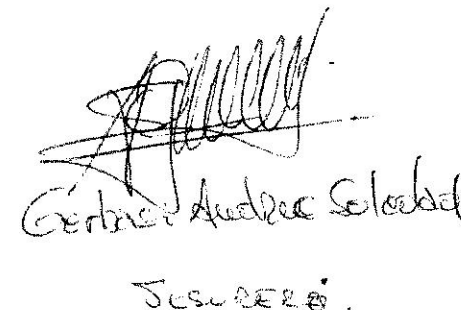 Gerbner Andrea Soledad
Tesorera.